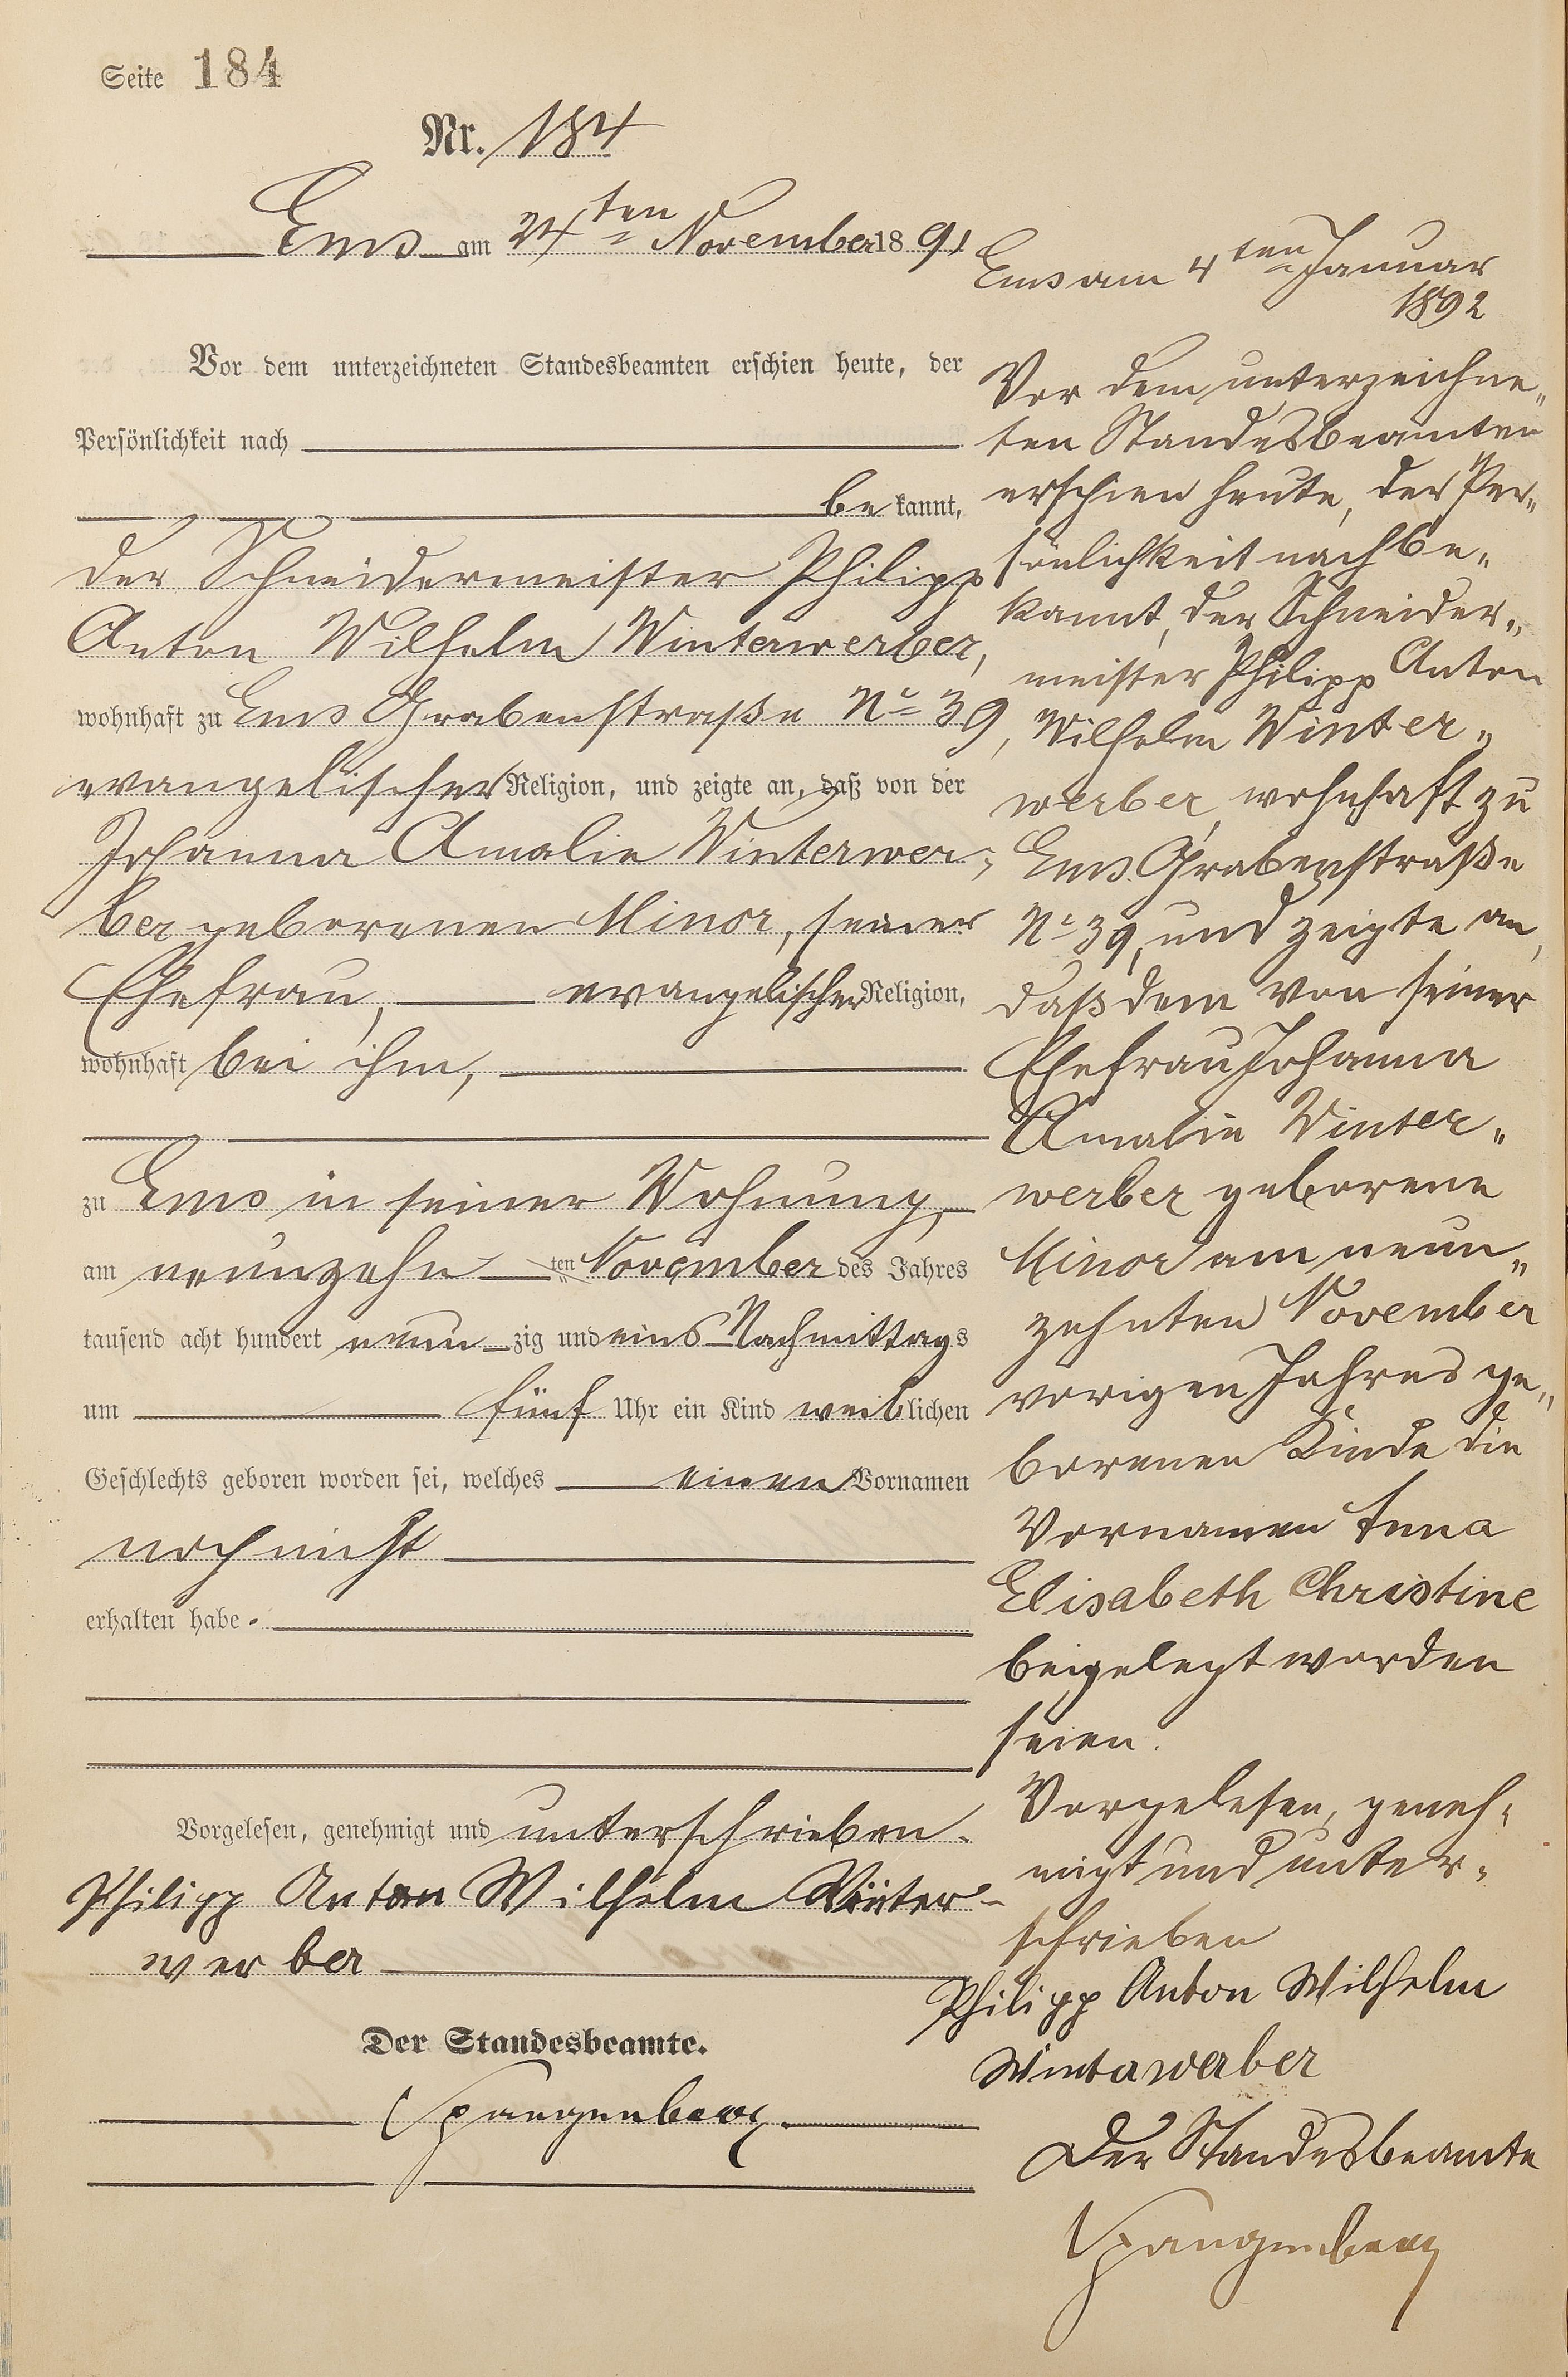 Seite 184
Nr. 184
Ems am 24ten November 1891
Vor dem unterzeichneten Standesbeamten erschien heute, der
Persönlichkeit nach
bekannt,
der Schneidermeister Philipp
Anton Wilhelm Winterwerber,
wohnhaft zu Ems Grabenstraße No 39,
evangelischer Religion, und zeigte an, daß von der
Johanna Amalie Winterwer-
ber geborenen Minor, seiner
Ehefrau, evangelischer Religion,
wohnhaft bei ihm,
zu Ems in seiner Wohnung,
am neunzehnten November des Jahres
tausend acht hundert neunzig und eins Nachmittags
um fünf Uhr ein Kind weiblichen
Geschlechts geboren worden sei, welches einen Vornamen
noch nicht
erhalten habe.
Vorgelesen, genehmigt und unterschrieben.
Philipp Anton Wilhelm Winter-
werber
Der Standesbeamte.
Spangenberg.
Ems am 4ten Januar
1892
Vor dem unterzeichne„
ten Standesbeamten
erschien heute, der Per„
sönlichkeit nach be„
kannt, der Schneider„
meister Philipp Anton
Wilhelm Winter„
werber, wohnhaft zu
Ems Grabenstraße
No 39, und zeigte an,
daß dem von seiner
Ehefrau Johanna
Amalie Winter„
werber geborene
Minor am neun„
zehnten November
vorigen Jahres ge„
borenen Kinde die
Vornamen Anna
Elisabeth Christine
beigelegt worden
seien.
Vorgelesen, geneh-
migt und unter-
schrieben
Philipp Anton Wilhelm
Winterwerber
Der Standesbeamte
Spangenberg